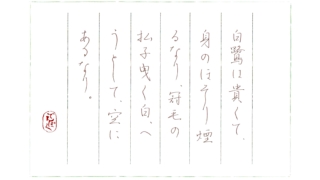 白鷺は貴くて、
身のほそり煙
るなり、冠毛の
払子曳く白、へ
うとして、空に
あるなり。